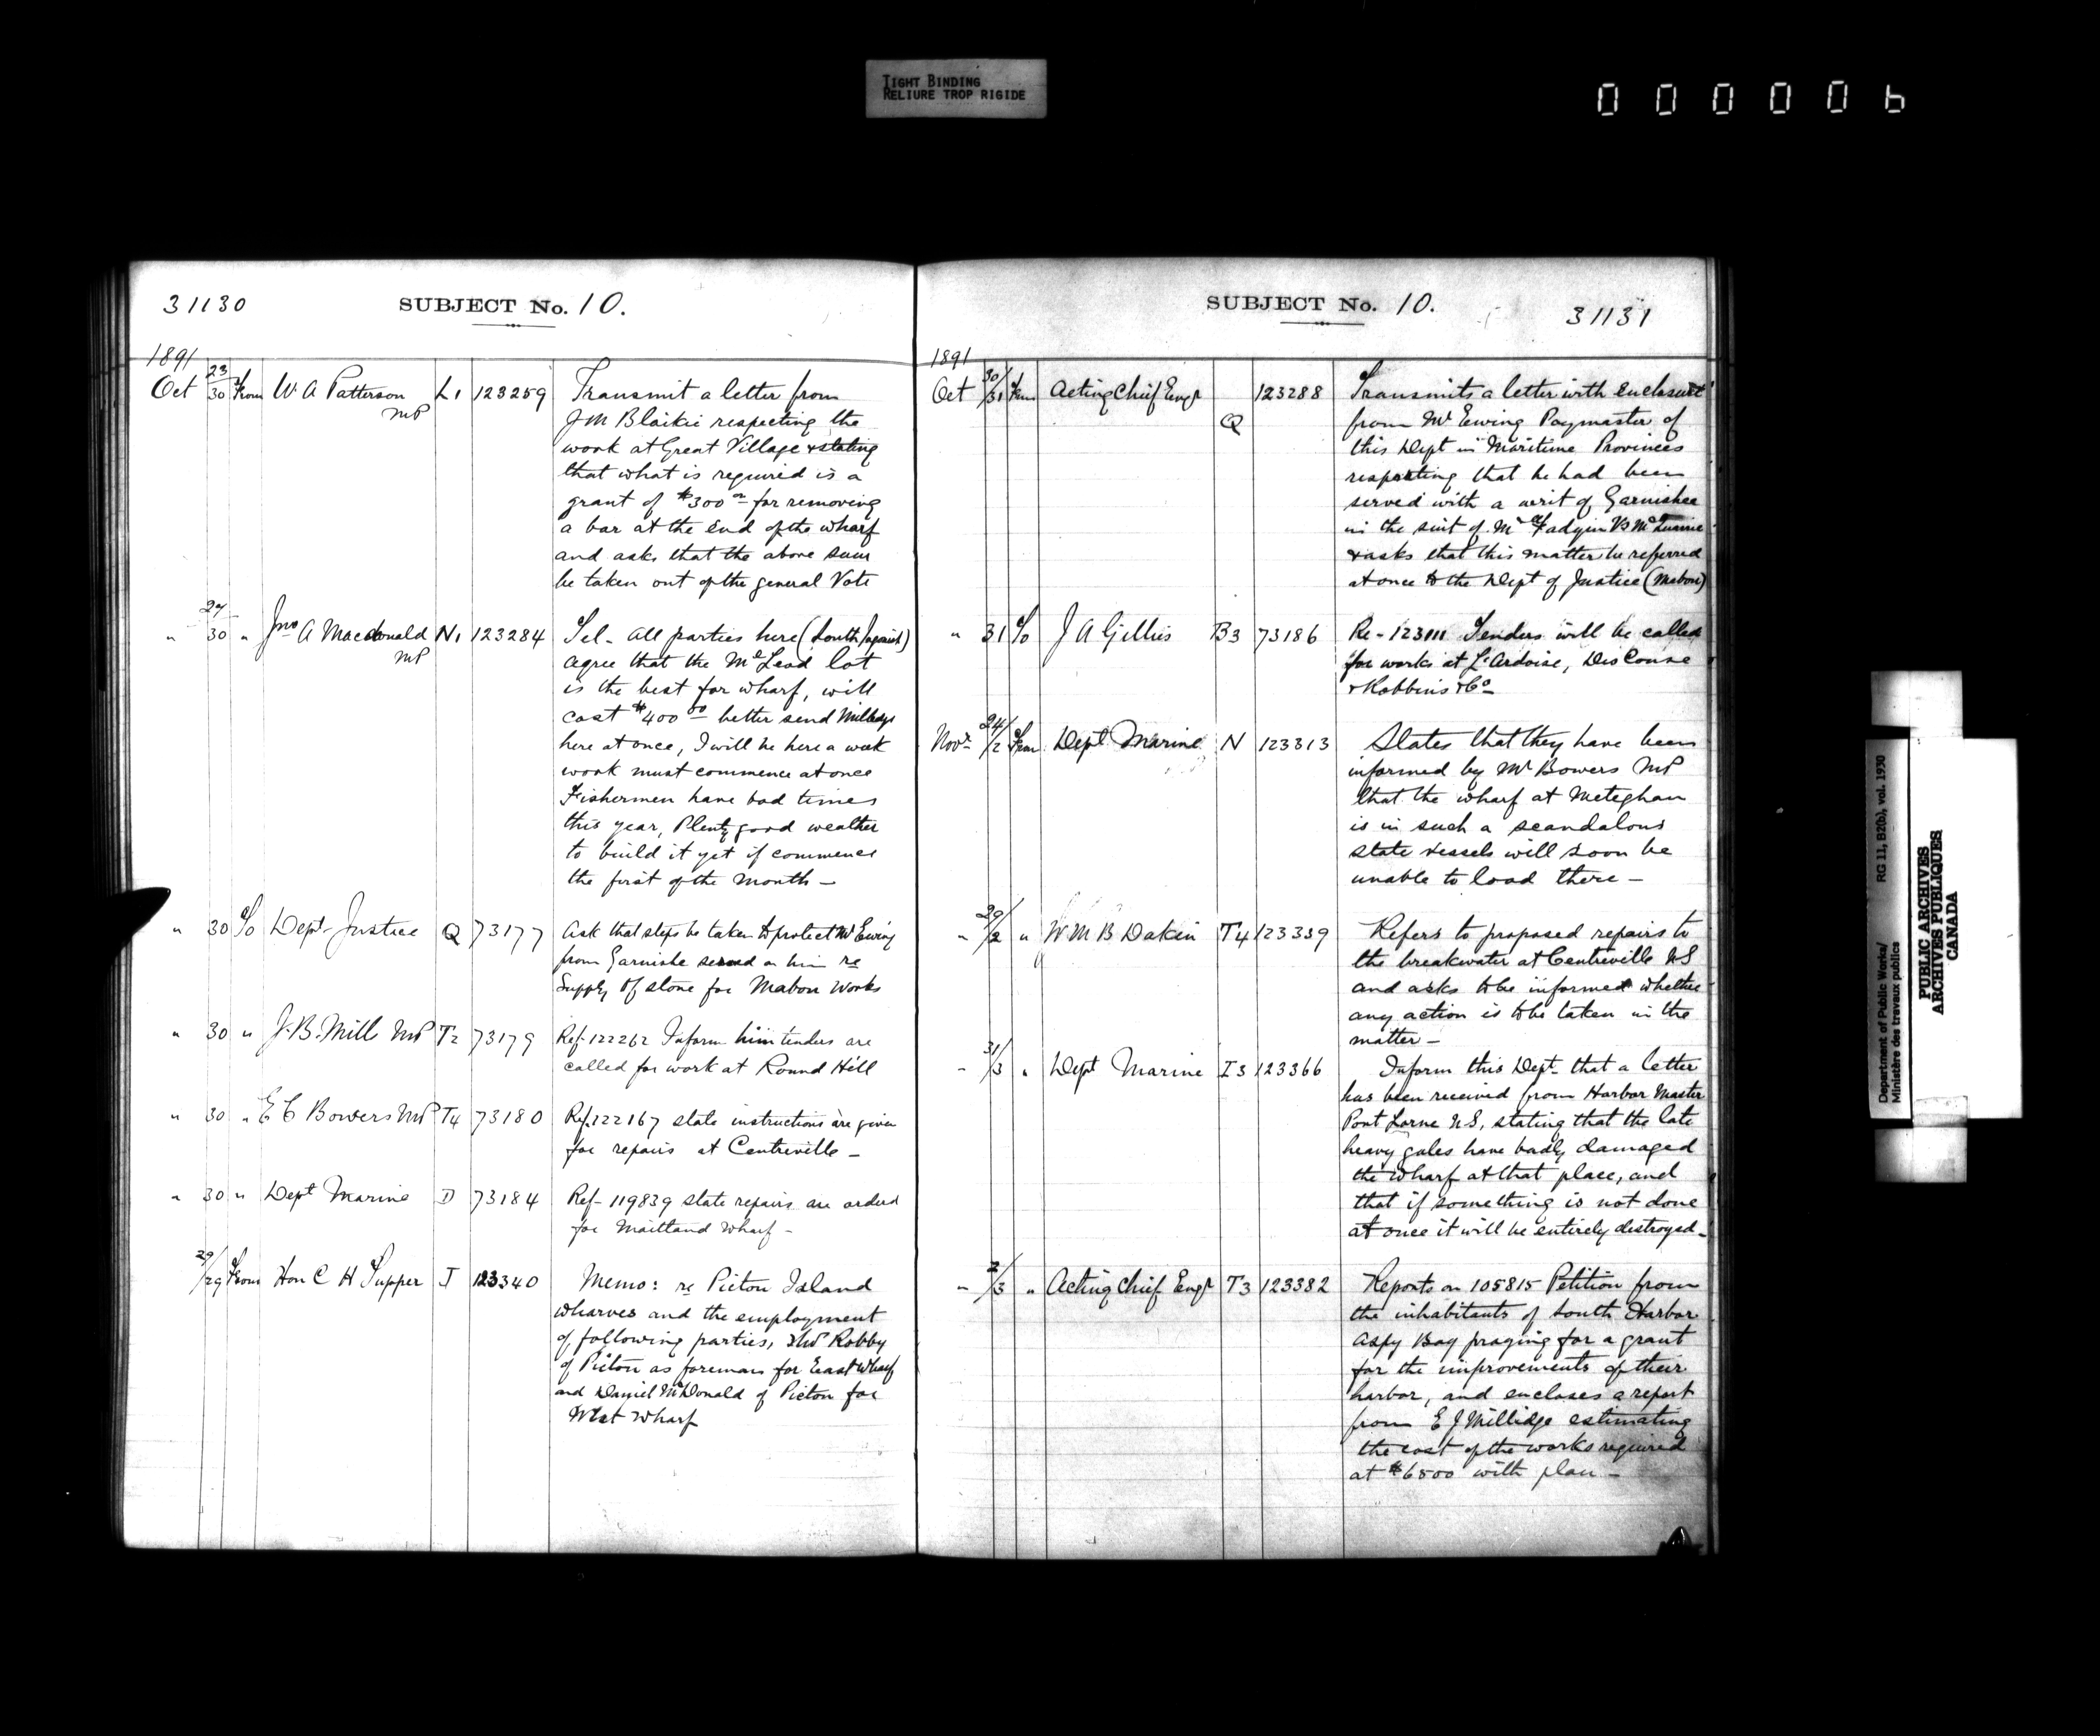 TIGHT BINDING
RELIURE TROP RIGIDE
000006
31130
SUBJECT No. 10.
1891
Oct 23/30 From W. A Patterson MP L1 123259 Transmit a letter from
J M Blaikie respecting the
work at Great Village & stating
that what is required is a
grant of $300 00 for removing
a bar at the end of the wharf
and asks that the above sum
be taken out of the general Vote
" 29/30 " Jno A Macdonald MP N1 123284 Tel - all parties here (South Ingonish)
agree that the McLeod lot
is the best for wharf, will
cost $400 00 better send Milledge
here at once, I will be here a week
work must commence at once
Fishermen have bad times
this year, Plenty good weather
to build it yet if commence
the first of the month -
" 30 To Dept Justice Q 73177 Ask that steps be taken to protect Mr Ewing
from Garnishe served on him re
Supply of stone for Mabou Works
" 30 " J. B. Mill MP T2 73179 Ref- 122262 Inform him tenders are
called for work at Round Hill
" 30 " E C Bowers MP T4 73180 Ref. 122167 state instructions are given
for repairs at Centreville -
" 30 " Dept Marine D 73184 Ref- 119839 state repairs are ordered
for Maitland Wharf -
29/29 From Hon C H Tupper J 123340 Memo: re Picton Island
wharves and the employment
of following parties, Robby
of Picton as foreman for East Wharf
and Daniel McDonald of Picton for
West Wharf
SUBJECT No. 10.
31131
1891
Oct 30/31 From Acting Chief Engr Q 123288 Transmits a letter with enclosure
from Mr Ewing Paymaster of
this Dept in Maritime Provinces
respecting that he had been
served with a writ of Garnishee
in the suit of McFadyin Vs
& asks that this matter be referred
at once to the Dept of Justice (Mabou)
" 31 To J A Gillies B3 73186 Re - 123111 Tenders will be called
for works at L'Ardoise, DesCouse
& Robbins & Co -
Novr 24/2 From Dept Marine N 123313 States that they have been
informed by Mr Bowers MP
that the wharf at Meteghan
is in such a scandalous
state vessels will soon be
unable to load there -
" 29/2 " W M B Dakin T4 123339 Refers to proposed repairs to
the breakwater at Centreville NS
and asks to be informed whether
any action is to be taken in the
matter -
" 31/3 " Dept Marine I3 123366 Inform this Dept. that a letter
has been received from Harbor Master
Port Lorne N.S, stating that the late
heavy gales have badly damaged
the Wharf at that place, and
that if something is not done
at once it will be entirely destroyed -
" 2/3 " Acting Chief Engr T3 123382 Reports on 105815 Petition from
the inhabitants of South Harbor
Aspy Bay praying for a grant
for the improvements of their
harbor, and encloses a report
from E J Millidge estimating
the cost of the works required
at $6500 with plan -
Department of Public Works/ RG 11, B2(b), vol. 1930
Ministère des travaux publics
PUBLIC ARCHIVES
ARCHIVES PUBLIQUES
CANADA